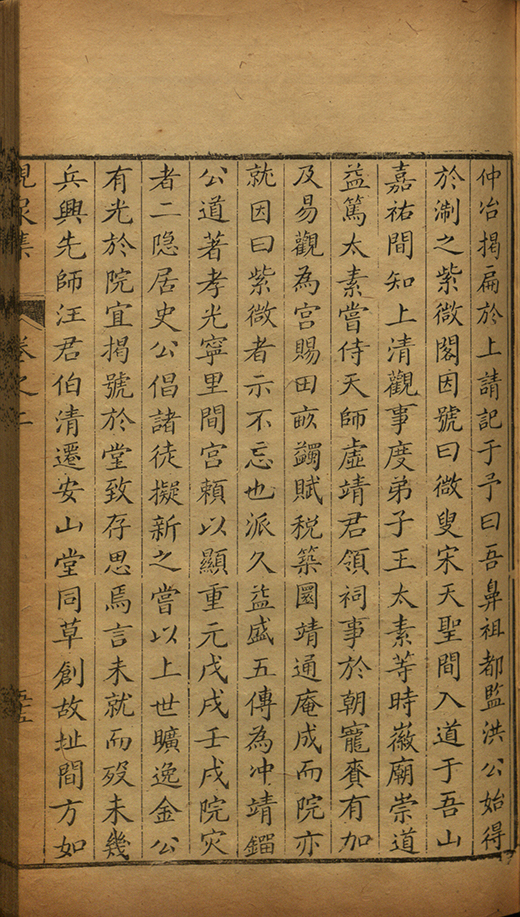 仲冶揭扁於上請記于予曰吾鼻祖都監洪公始得
於淛之紫微閣因號曰微叟宋天聖間入道于吾山
嘉祐間知上清觀事度弟子王太素等時徽廟崇道
益篤太素嘗侍天師虛靖君領祠事於朝寵賚有加
及易觀為宮賜田畝蠲賦稅築圜靖通庵成而院亦
就因曰紫微者示不忘也派久益盛五傳為冲靖鏴
公道著孝光寧里間宮頼以顯重元戊戌壬戌院灾
者二隐居史公倡諸徒擬新之嘗以上世曠逸金公
有光於院宜揭號於堂致存思焉言未就而歿未幾
兵興先師汪君伯清遷安山堂同草創故址間方如
峴泉集 卷之二